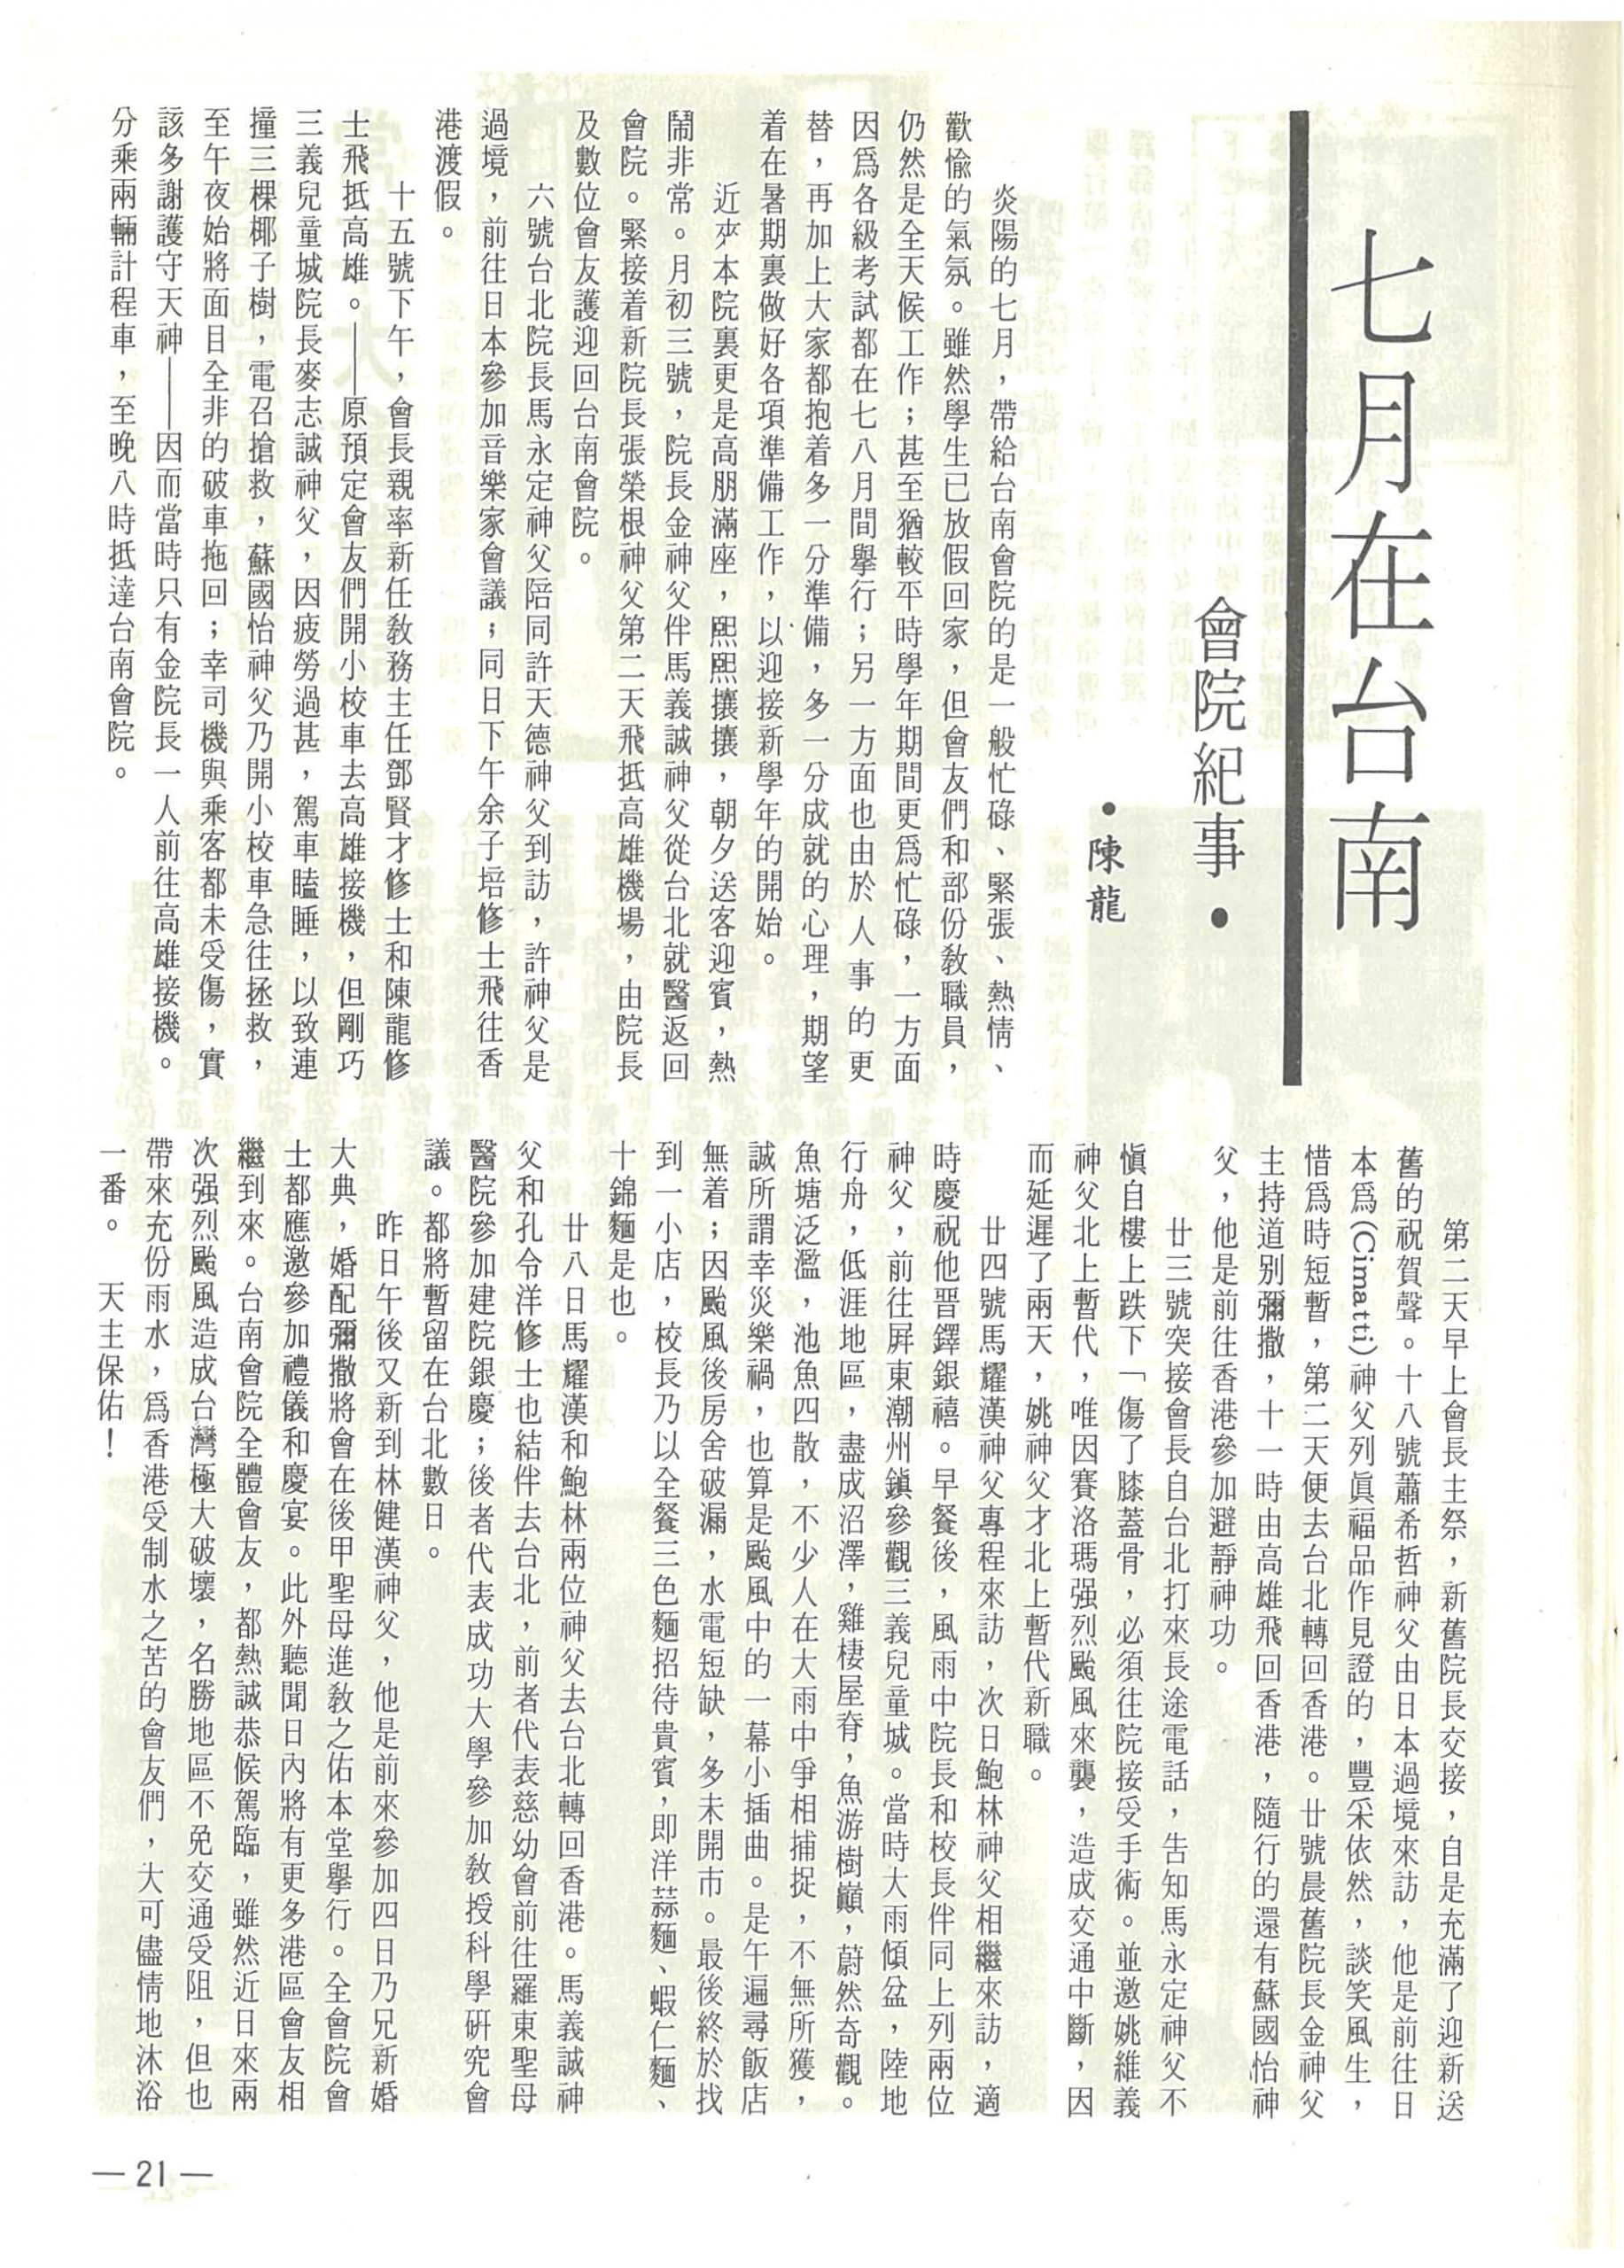 七月在台南
會院紀事•
•陳龍
炎陽的七月，帶給台南會院的是一般忙碌、緊張、熱情、
歡愉的氣氛。雖然學生已放假回家，但會友們和部份教職員，
仍然是全天候工作；甚至猶較平時學年期間更爲忙碌，一方面
因爲各級考試都在七八月間舉行；另一方面也由於人事的更
替，再加上大家都抱着多一分準備，多一分成就的心理，期望
着在暑期裏做好各項準備工作，以迎接新學年的開始。
近來本院裏更是高朋滿座，熙熙攘攘，朝夕送客迎賓，熱
鬧非常。月初三號，院長金神父伴馬義誠神父從台北就醫返回
會院。緊接着新院長張榮根神父第二天飛抵高雄機場，由院長
及數位會友護迎回台南會院。
六號台北院長馬永定神父陪同許天德神父到訪，許神父是
過境，前往日本參加音樂家會議；同日下午余子培修士飛往香
港渡假。
十五號下午，會長親率新任教務主任鄧賢才修士和陳龍修
士飛抵高雄。——原預定會友們開小校車去高雄接機，但剛巧
三義兒童城院長麥志誠神父，因疲勞過甚，駕車瞌睡，以致連
撞三棵椰子樹，電召搶救，蘇國怡神父乃開小校車急往拯救，
至午夜始將面目全非的破車拖回；幸司機與乘客都未受傷，實
該多謝護守天神——因而當時只有金院長一人前往高雄接機。
分乘兩輛計程車，至晚八時抵達台南會院。
第二天早上會長主祭，新舊院長交接，自是充滿了迎新送
舊的祝賀聲。十八號蕭希哲神父由日本過境來訪，他是前往日
本爲(Cimatti)神父列眞福品作見證的，豐采依然，談笑風生，
惜爲時短暫，第二天便去台北轉回香港。廿號晨舊院長金神父
主持道別彌撒，十一時由高雄飛回香港，隨行的還有蘇國怡神
父，他是前往香港參加避靜神功。
廿三號突接會長自台北打來長途電話，告知馬永定神父不
愼自樓上跌下「傷了膝蓋骨，必須往院接受手術。並邀姚維義
神父北上暫代，唯因賽洛瑪强烈颱風來襲，造成交通中斷，因
而延遲了兩天，姚神父才北上暫代新職。
廿四號馬耀漢神父專程來訪，次日鮑林神父相繼來訪，適
時慶祝他晋鐸銀禧。早餐後，風雨中院長和校長伴同上列兩位
神父，前往屏東潮州鎮參觀三義兒童城。當時大雨傾盆，陸地
行舟，低涯地區，盡成沼澤，雞棲屋脊，魚游樹巔，蔚然奇觀。
魚塘泛濫，池魚四散，不少人在大雨中爭相捕捉，不無所獲，
誠所謂幸災樂禍，也算是颱風中的一幕小插曲。是午遍尋飯店
無着；因颱風後房舍破漏，水電短缺，多未開市。最後終於找
到一小店，校長乃以全餐三色麵招待貴賓，即洋蒜麵、蝦仁麵、
十錦麵是也。
廿八日馬耀漢和鮑林兩位神父去台北轉回香港。馬義誠神
父和孔令洋修士也結伴去台北，前者代表慈幼會前往羅東聖母
醫院參加建院銀慶；後者代表成功大學參加教授科學研究會
議。都將暫留在台北數日。
昨日午後又新到林健漢神父，他是前來參加四日乃兄新婚
大典，婚配彌撒將會在後甲聖母進教之佑本堂擧行。全會院會
士都應邀參加禮儀和慶宴。此外聽聞日內將有更多港區會友相
繼到來。台南會院全體會友，都熱誠恭候駕臨，雖然近日來兩
次强烈颱風造成台灣極大破壞，名勝地區不免交通受阻，但也
帶來充份雨水，爲香港受制水之苦的會友們，大可儘情地沐浴
一番。 天主保佑！
—21—